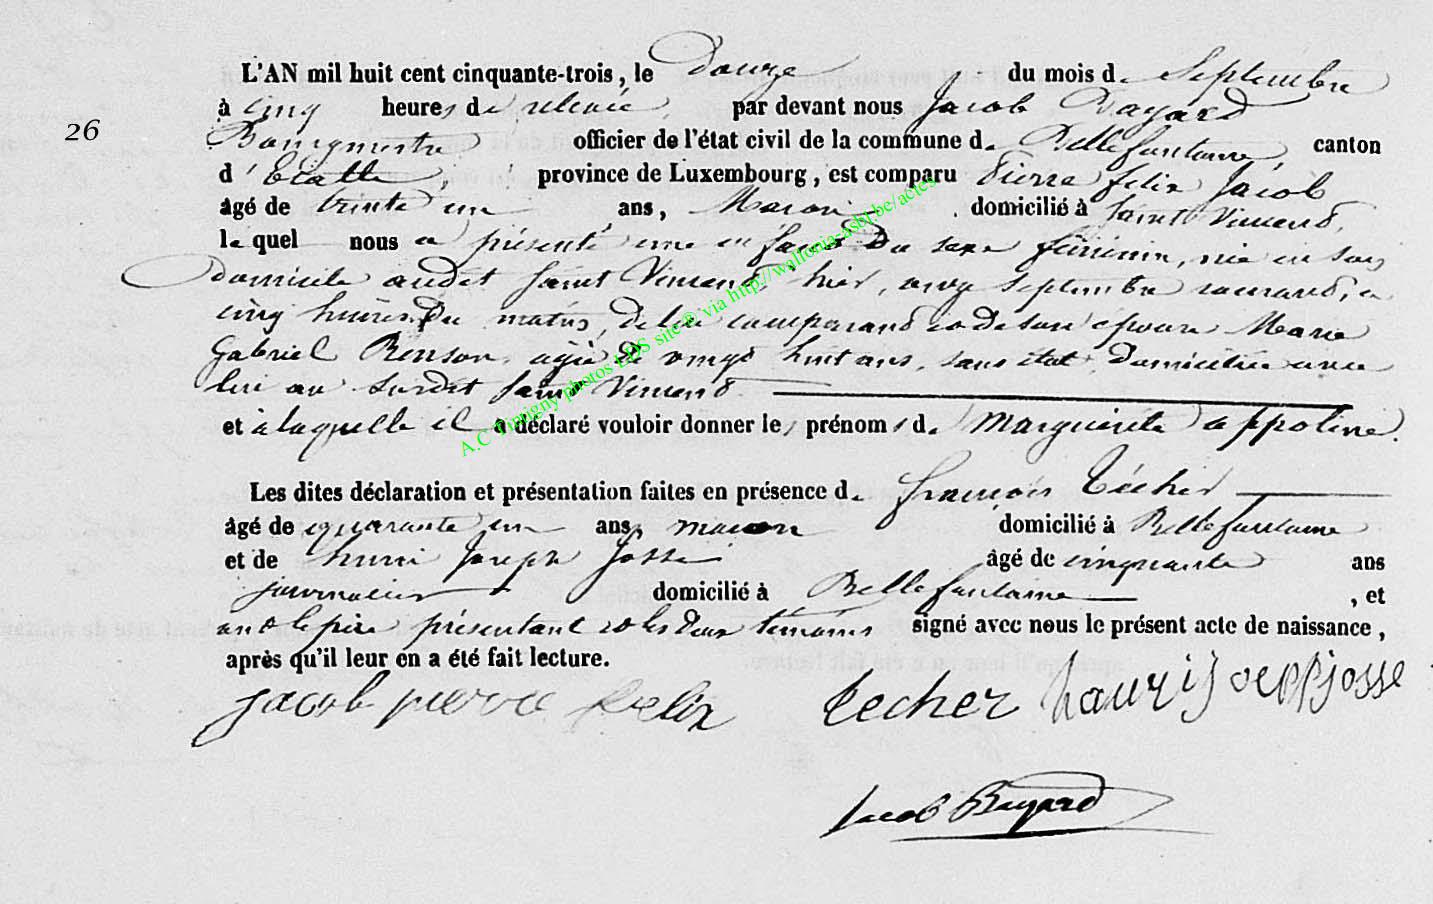 26
L'AN mil huit cent cinquante-trois, le Douze du mois de Septembre
à cinq heures de relevée, par devant nous Jacob Bayard
Bourgmestre officier de l'état civil de la commune de Bellefontaine, canton
d'Etalle, province de Luxembourg, est comparu Pierre felix Jacob
âgé de trente un ans, Maçon domicilié à Saint Vincent,
lequel nous a présenté une enfant Du sexe féminin, née en son
domicile audit Saint Vincent, hier, onze Septembre courant, a
cinq heures Du matin, de lui comparant et de son epouse Marie
Gabriel Renson, agée de vingt huit ans, sans état, Domiciliée avec
lui au susdit Saint Vincent
et à laquelle il a déclaré vouloir donner les prénoms de Marguerite appoline.
Les dites déclaration et présentation faites en présence de françois Técher
âgé de quarante un ans maçon domicilié à Bellefontaine
et de henri Joseph Josse âgé de cinquante ans
journalier domicilié à Bellefontaine, et
ont le père présentant et les deux temoins signé avec nous le présent acte de naissance,
après qu'il leur en a été fait lecture.
jacob pierre felix techer haurij oepp josse
Jacob Bayard
A.C Tintigny photos LDS site ® via http://wallonia-asbl.be/actes